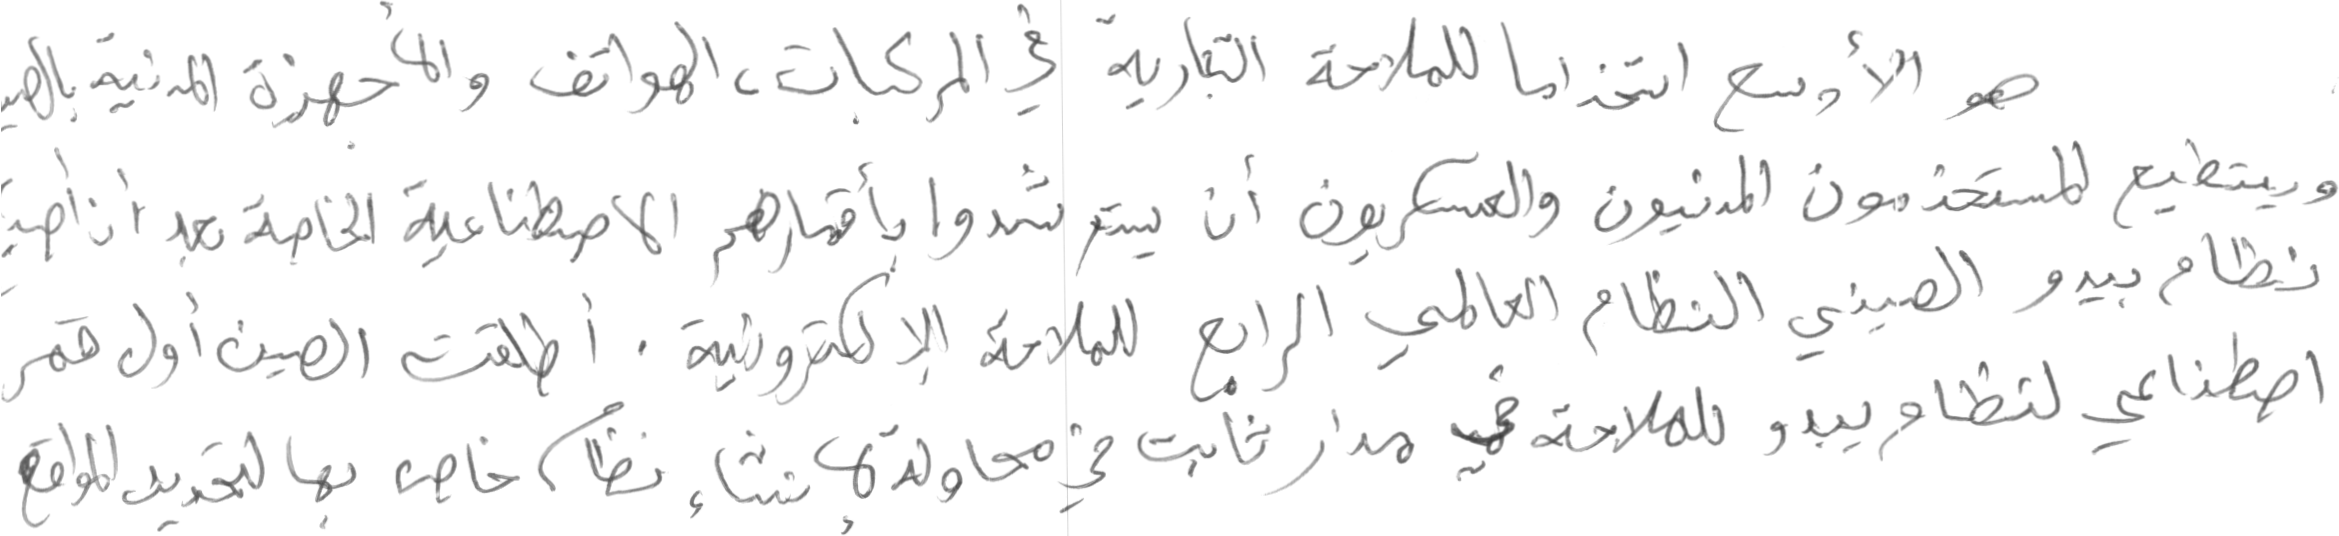 هو الأوسع استخداما للملاحة التجارية في المركبات، الهواتف والأجهزة المدنية
ويستطيع المستخدمون المدنيون والعسكريون أن يسترشدوا بأقمارهم الاصطناعية الخاصة بعد أن
نظام بيدو الصيني النظام العالمي الرابع للملاحة الإلكترونية. أطلقت الصين أول قمر
اصطناعي لنظام بيدو للملاحة في مدار ثابت في محاولة لإنشاء نظام خاص بها لتحديد المواقع